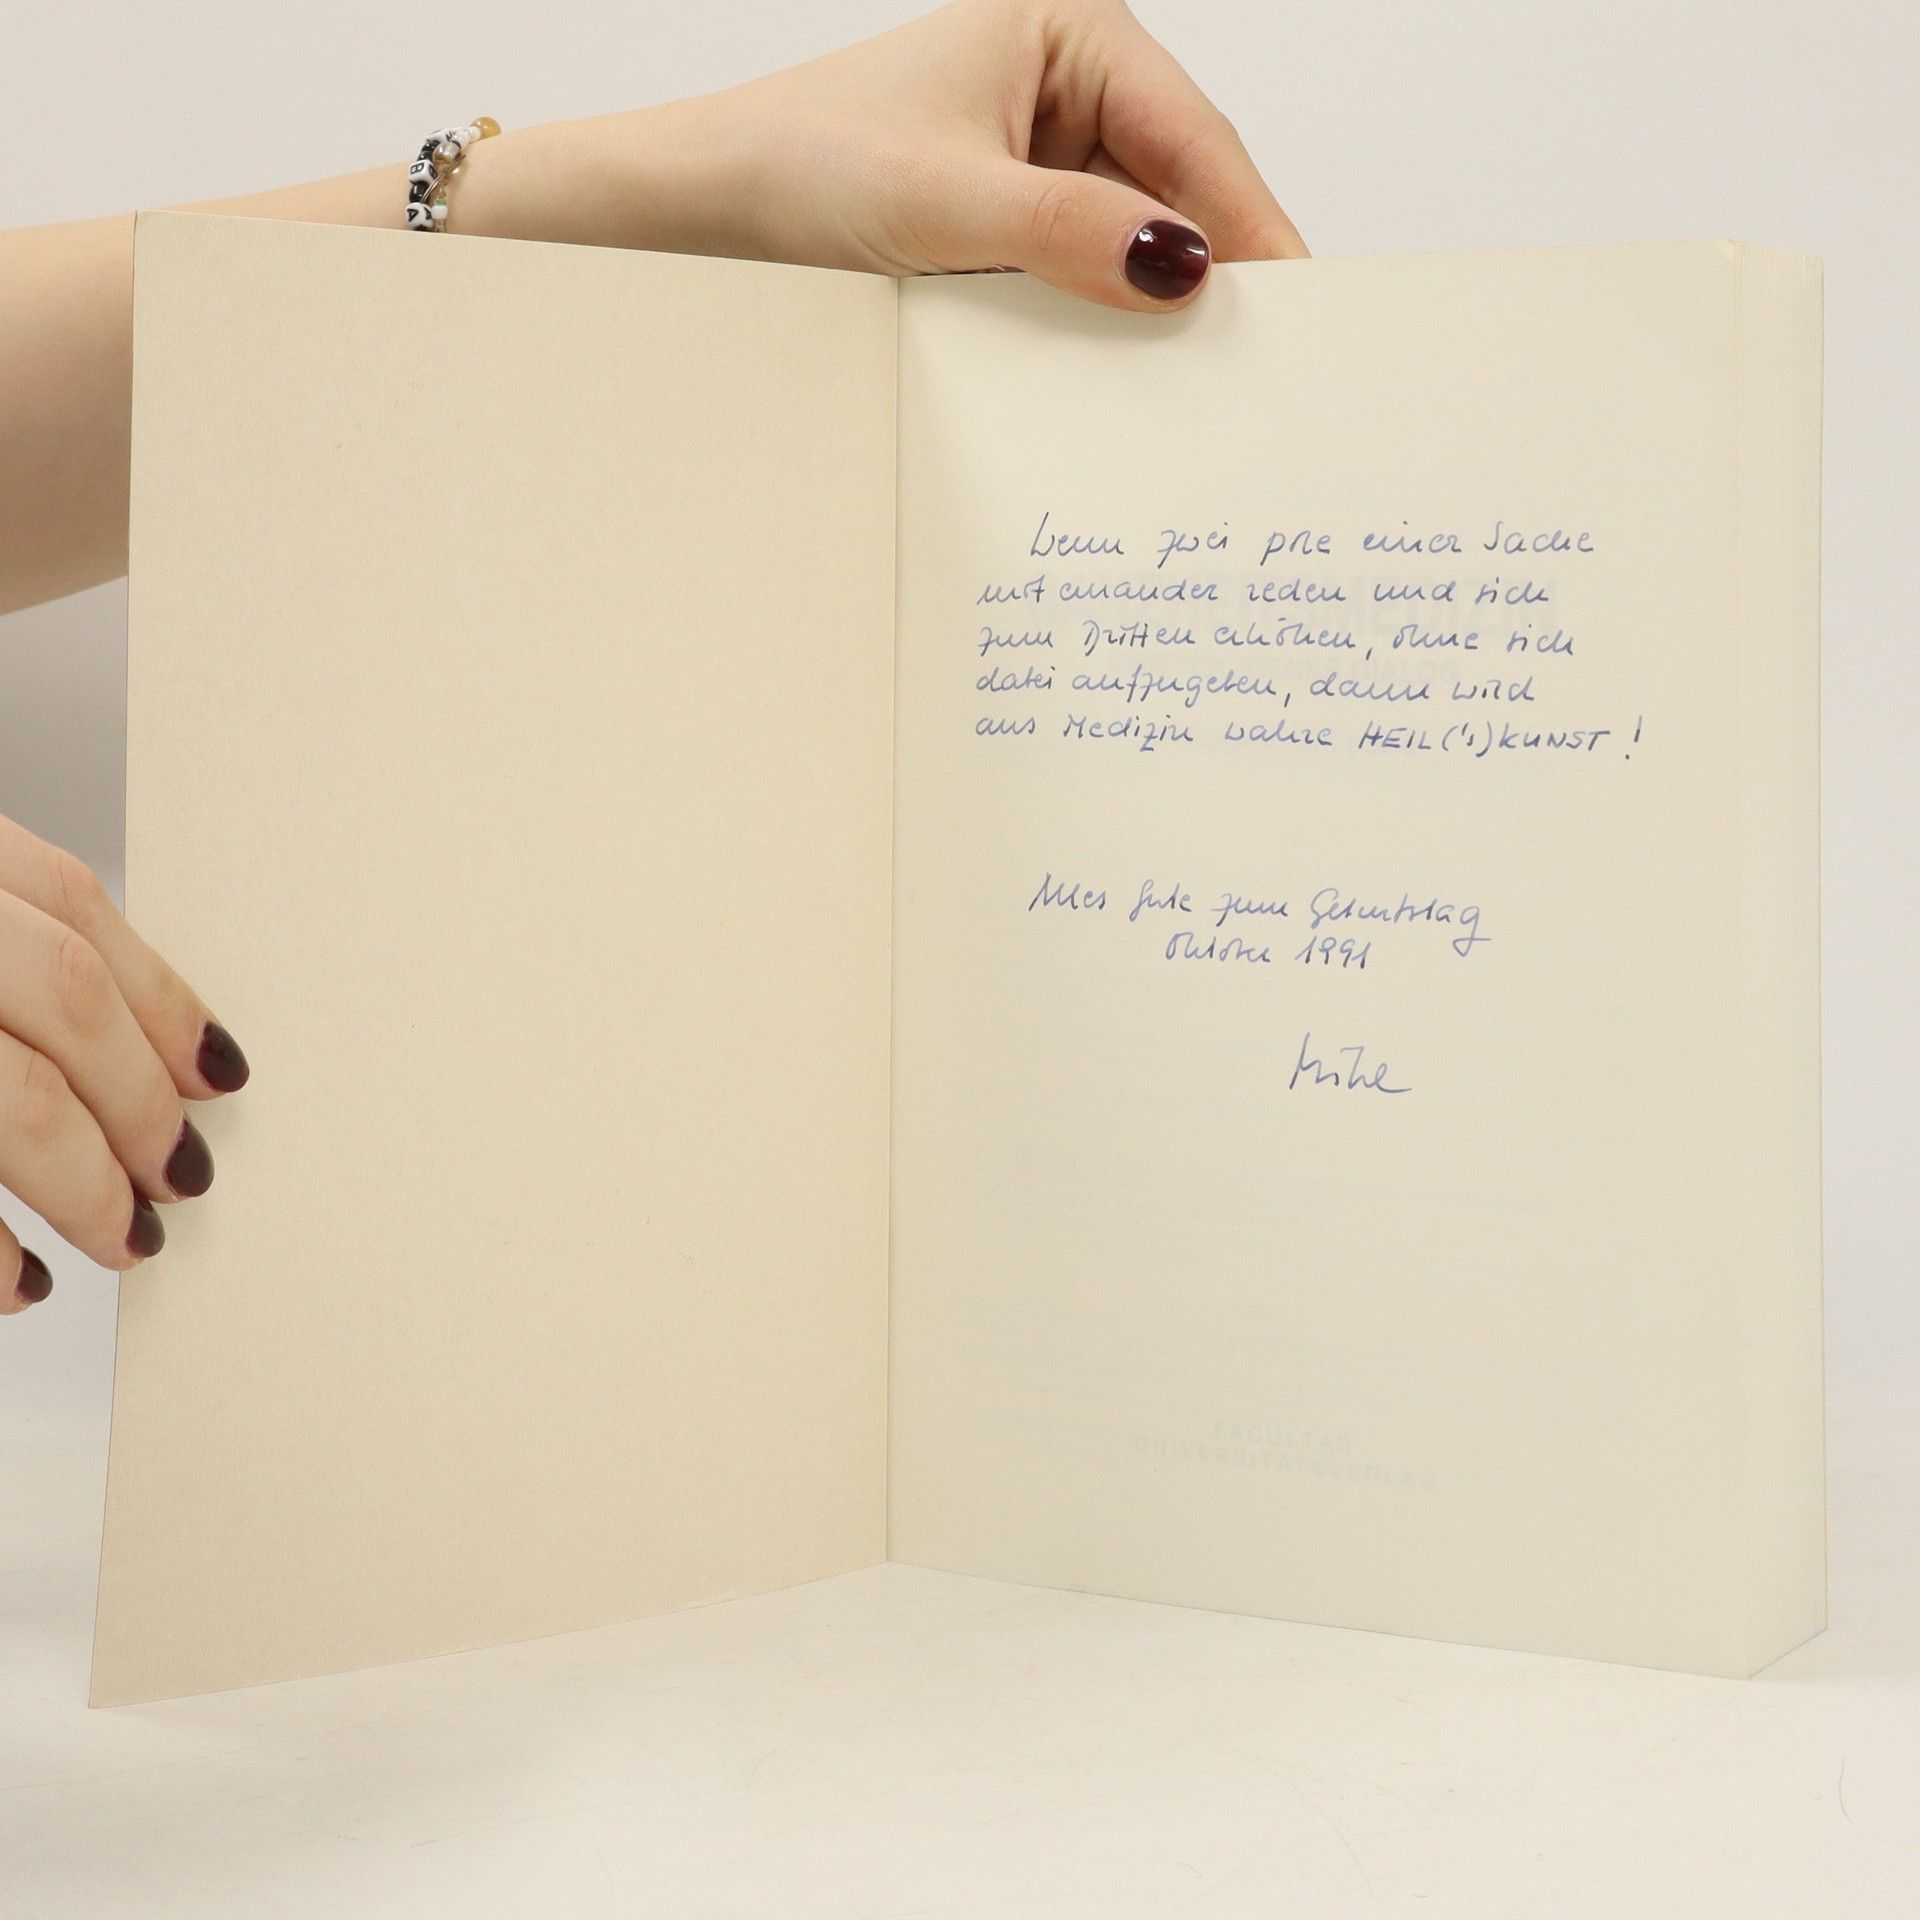 B
A
Wenn zwei ob einer Sache
miteinander reden und sich
zum Dritten erhöhen, ohne sich
dabei aufzugeben, dann wird
aus Medizin wahre HEIL('s)KUNST!
Alles Gute zum Geburtstag
Oktober 1991
FACULTAS
UNIVERSITÄTSVERLAG